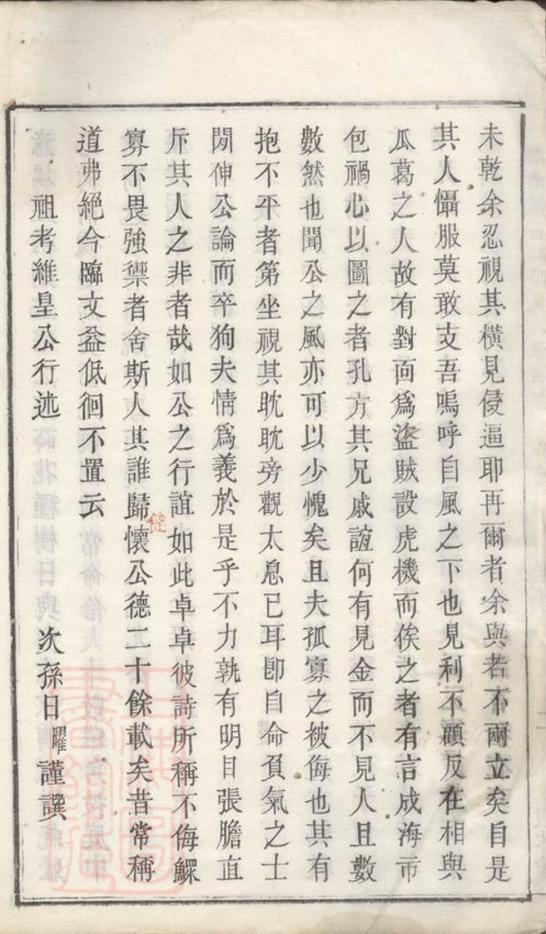 未乾余忍視其橫見侵逼耶再爾者余與若不兩立矣自是
其人懾服莫敢支吾嗚呼自風之下也見利不顧反在相與
瓜葛之人故有對面為盜賊設虎機而俟之者有言成海市
包禍心以圖之者孔方其兄戚誼何有見金而不見人且數
數然也聞公之風亦可以少愧矣且夫孤寡之被侮也其有
抱不平者第坐視其眈眈旁觀太息已耳即自命負氣之士
閒伸公論而卒狥夫情為義於是乎不力孰有明目張膽直
斥其人之非者哉如公之行誼如此卓卓彼詩所稱不侮鰥
寡不畏強禦者舍斯人其誰歸懷公德二十餘載矣昔常稱
道弗絕今臨文益低徊不置云
祖考維皇公行述 次孫日曜謹譔